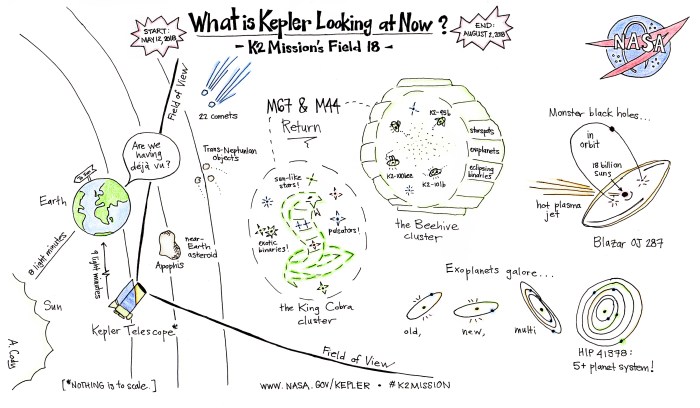 What is Kepler Looking at Now?
- K2 Mission's Field 18 -
START:
MAY 12, 2018
END:
AUGUST 2, 2018
NASA
Field of View
22 comets
Trans-Neptunian
objects
Are we
having
déjà vu?
Earth
8 light minutes
9 light minutes
Sun
near-
Earth
asteroid
Apophis
Kepler Telescope*
A. Cody
[*NOTHING is to scale.]
M67 & M44
Return
sun-like
stars!
exotic
binaries!
pulsators!
the King Cobra
cluster
K2-95b
K2-100b
K2-101b
starspots
exoplanets
eclipsing
binaries
the Beehive
cluster
Monster black holes...
in
orbit
18 billion
suns
hot plasma
jet
Blazar OJ 287
Exoplanets galore...
old,
new,
multi
HIP 41378:
5+ planet system!
Field of View
WWW.NASA.GOV/KEPLER • #K2MISSION